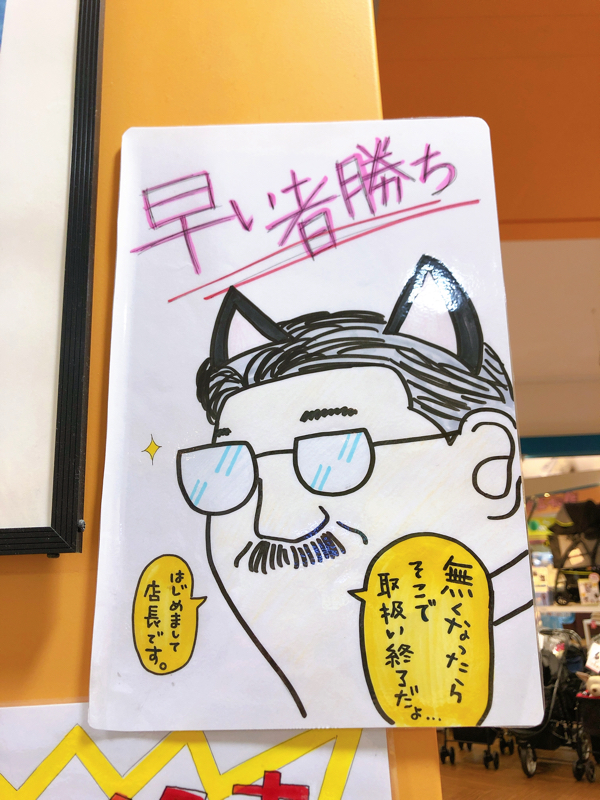 早い者勝ち
無くなったら
そこで
取扱い終了だょ...
はじめまして
店長です。